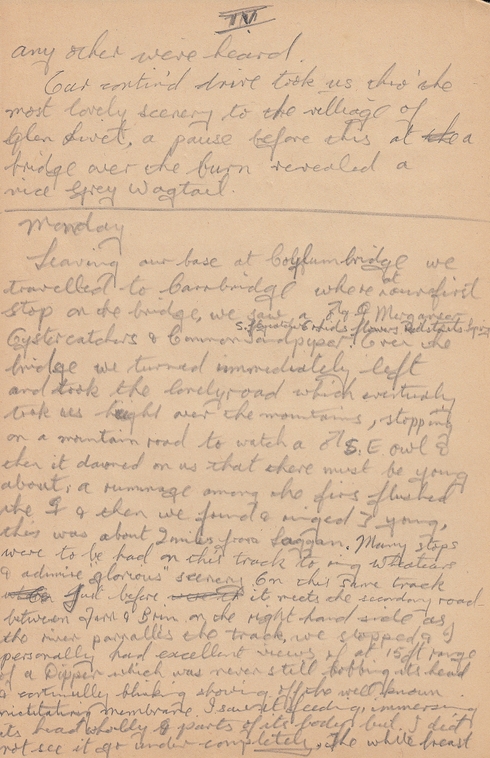 IV
any other were heard.
Our contin'd drive took us thro' the
most lovely scenery to the village of
Glen Livet, a pause before this at the a
bridge over the burn revealed a
nice Grey Wagtail.
Monday
Leaving our base at Coylumbridge we
travelled to Carrbridge where at our first
stop on the bridge, we saw a ♂ & ♀ Merganser
S. Flycatcher Redstarts
Oystercatchers & Common Sandpiper. Over the
bridge we turned immediately left
and took the lonely road which eventually
took us height over the mountains, stopping
on a mountain road to watch a ♂ S.E. owl &
then it dawned on us that there must be young
about, a rummage among the firs flushed
the ♀ & then we found & ringed 3 young,
this was about 2 miles from Laggan. Many stops
were to be had on this track to ring Wheatears
& admire "glorious" scenery. On this same track
just before it meets the secondary road
between Farr & Brin on the right hand side as
the river parralles the track, we stopped & I
personally had excellent views of at 15ft range
of a Dipper which was never still bobbing its head
& continually blinking showing off the well known
nictitating membrane. I saw it feeding, immersing
its head wholly & parts of its body but I did
not see it go under completely, The white breast